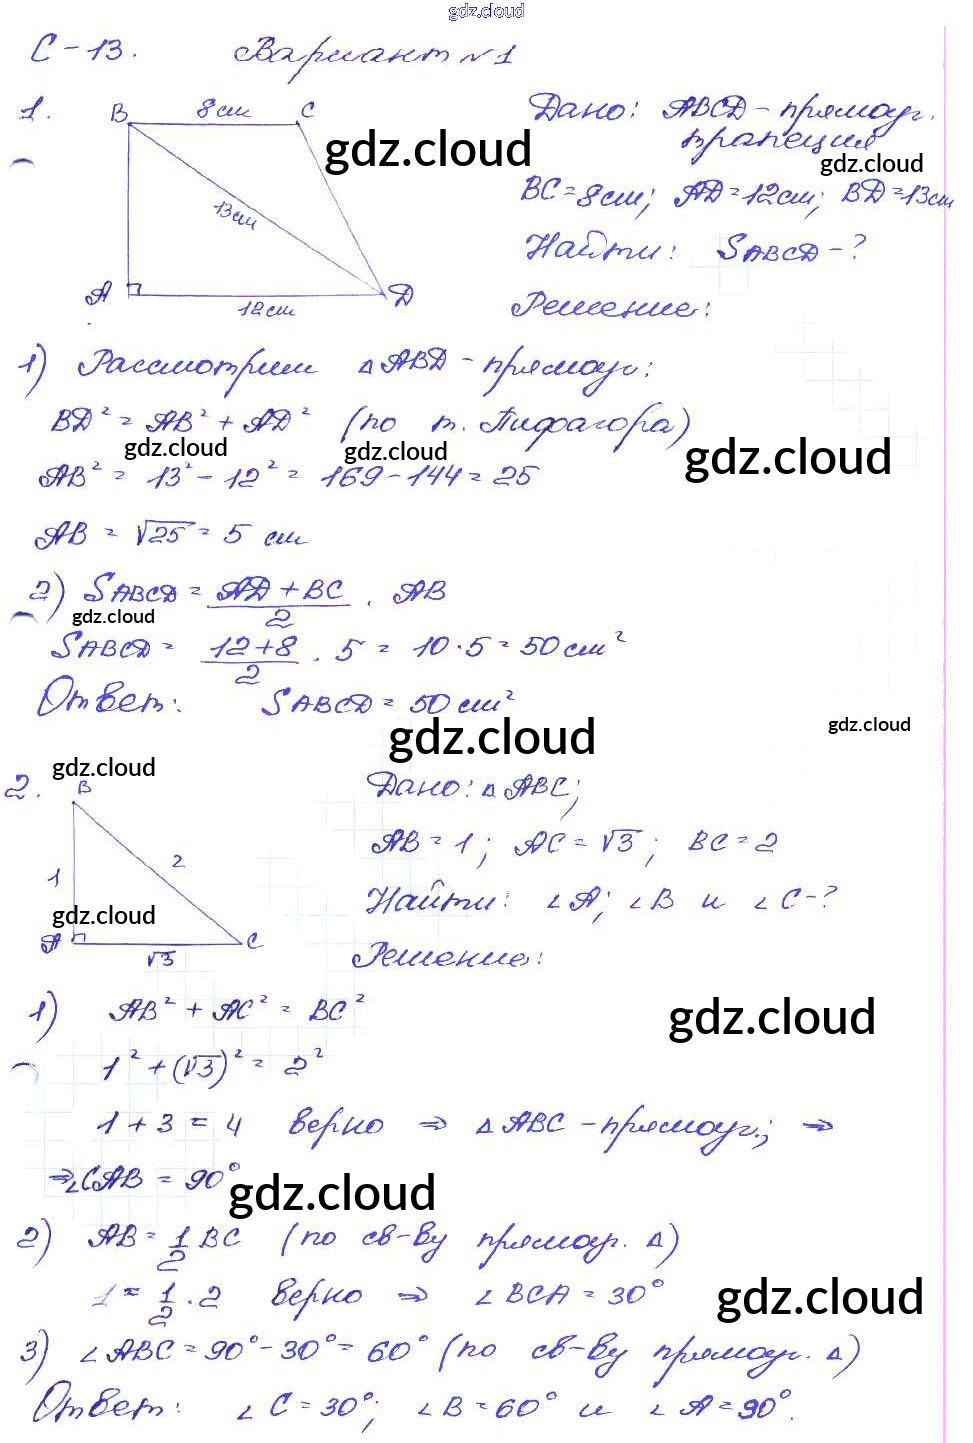 gdz.cloud
С-13. Вариант №1
1. B 8см C
Дано: ABCD - прямоуг.
трапеция
gdz.cloud
gdz.cloud
13см
BC = 8см; AD = 12см; BD = 13см
Найти: SABCD - ?
A 12см D
Решение:
1) Рассмотрим △ABD - прямоуг:
BD² = AB² + AD² (по т. Пифагора)
gdz.cloud gdz.cloud gdz.cloud
AB² = 13² - 12² = 169 - 144 = 25
AB = √25 = 5 см
2) SABCD = (AD + BC)/2 · AB
gdz.cloud
SABCD = (12+8)/2 · 5 = 10·5 = 50 см²
Ответ: SABCD = 50 см²
gdz.cloud gdz.cloud
gdz.cloud
2. B
Дано: △ABC;
AB = 1; AC = √3; BC = 2
1 2
Найти: ∠A; ∠B и ∠C - ?
gdz.cloud
A √3 C
Решение:
1) AB² + AC² = BC²
gdz.cloud
1² + (√3)² = 2²
1 + 3 = 4 верно ⇒ △ABC - прямоуг.; ⇒
⇒ ∠CAB = 90°
gdz.cloud
2) AB = 1/2 BC (по св-ву прямоуг. △)
1 = 1/2 · 2 верно ⇒ ∠BCA = 30°
gdz.cloud
3) ∠ABC = 90° - 30° = 60° (по св-ву прямоуг. △)
Ответ: ∠C = 30°; ∠B = 60° и ∠A = 90°.